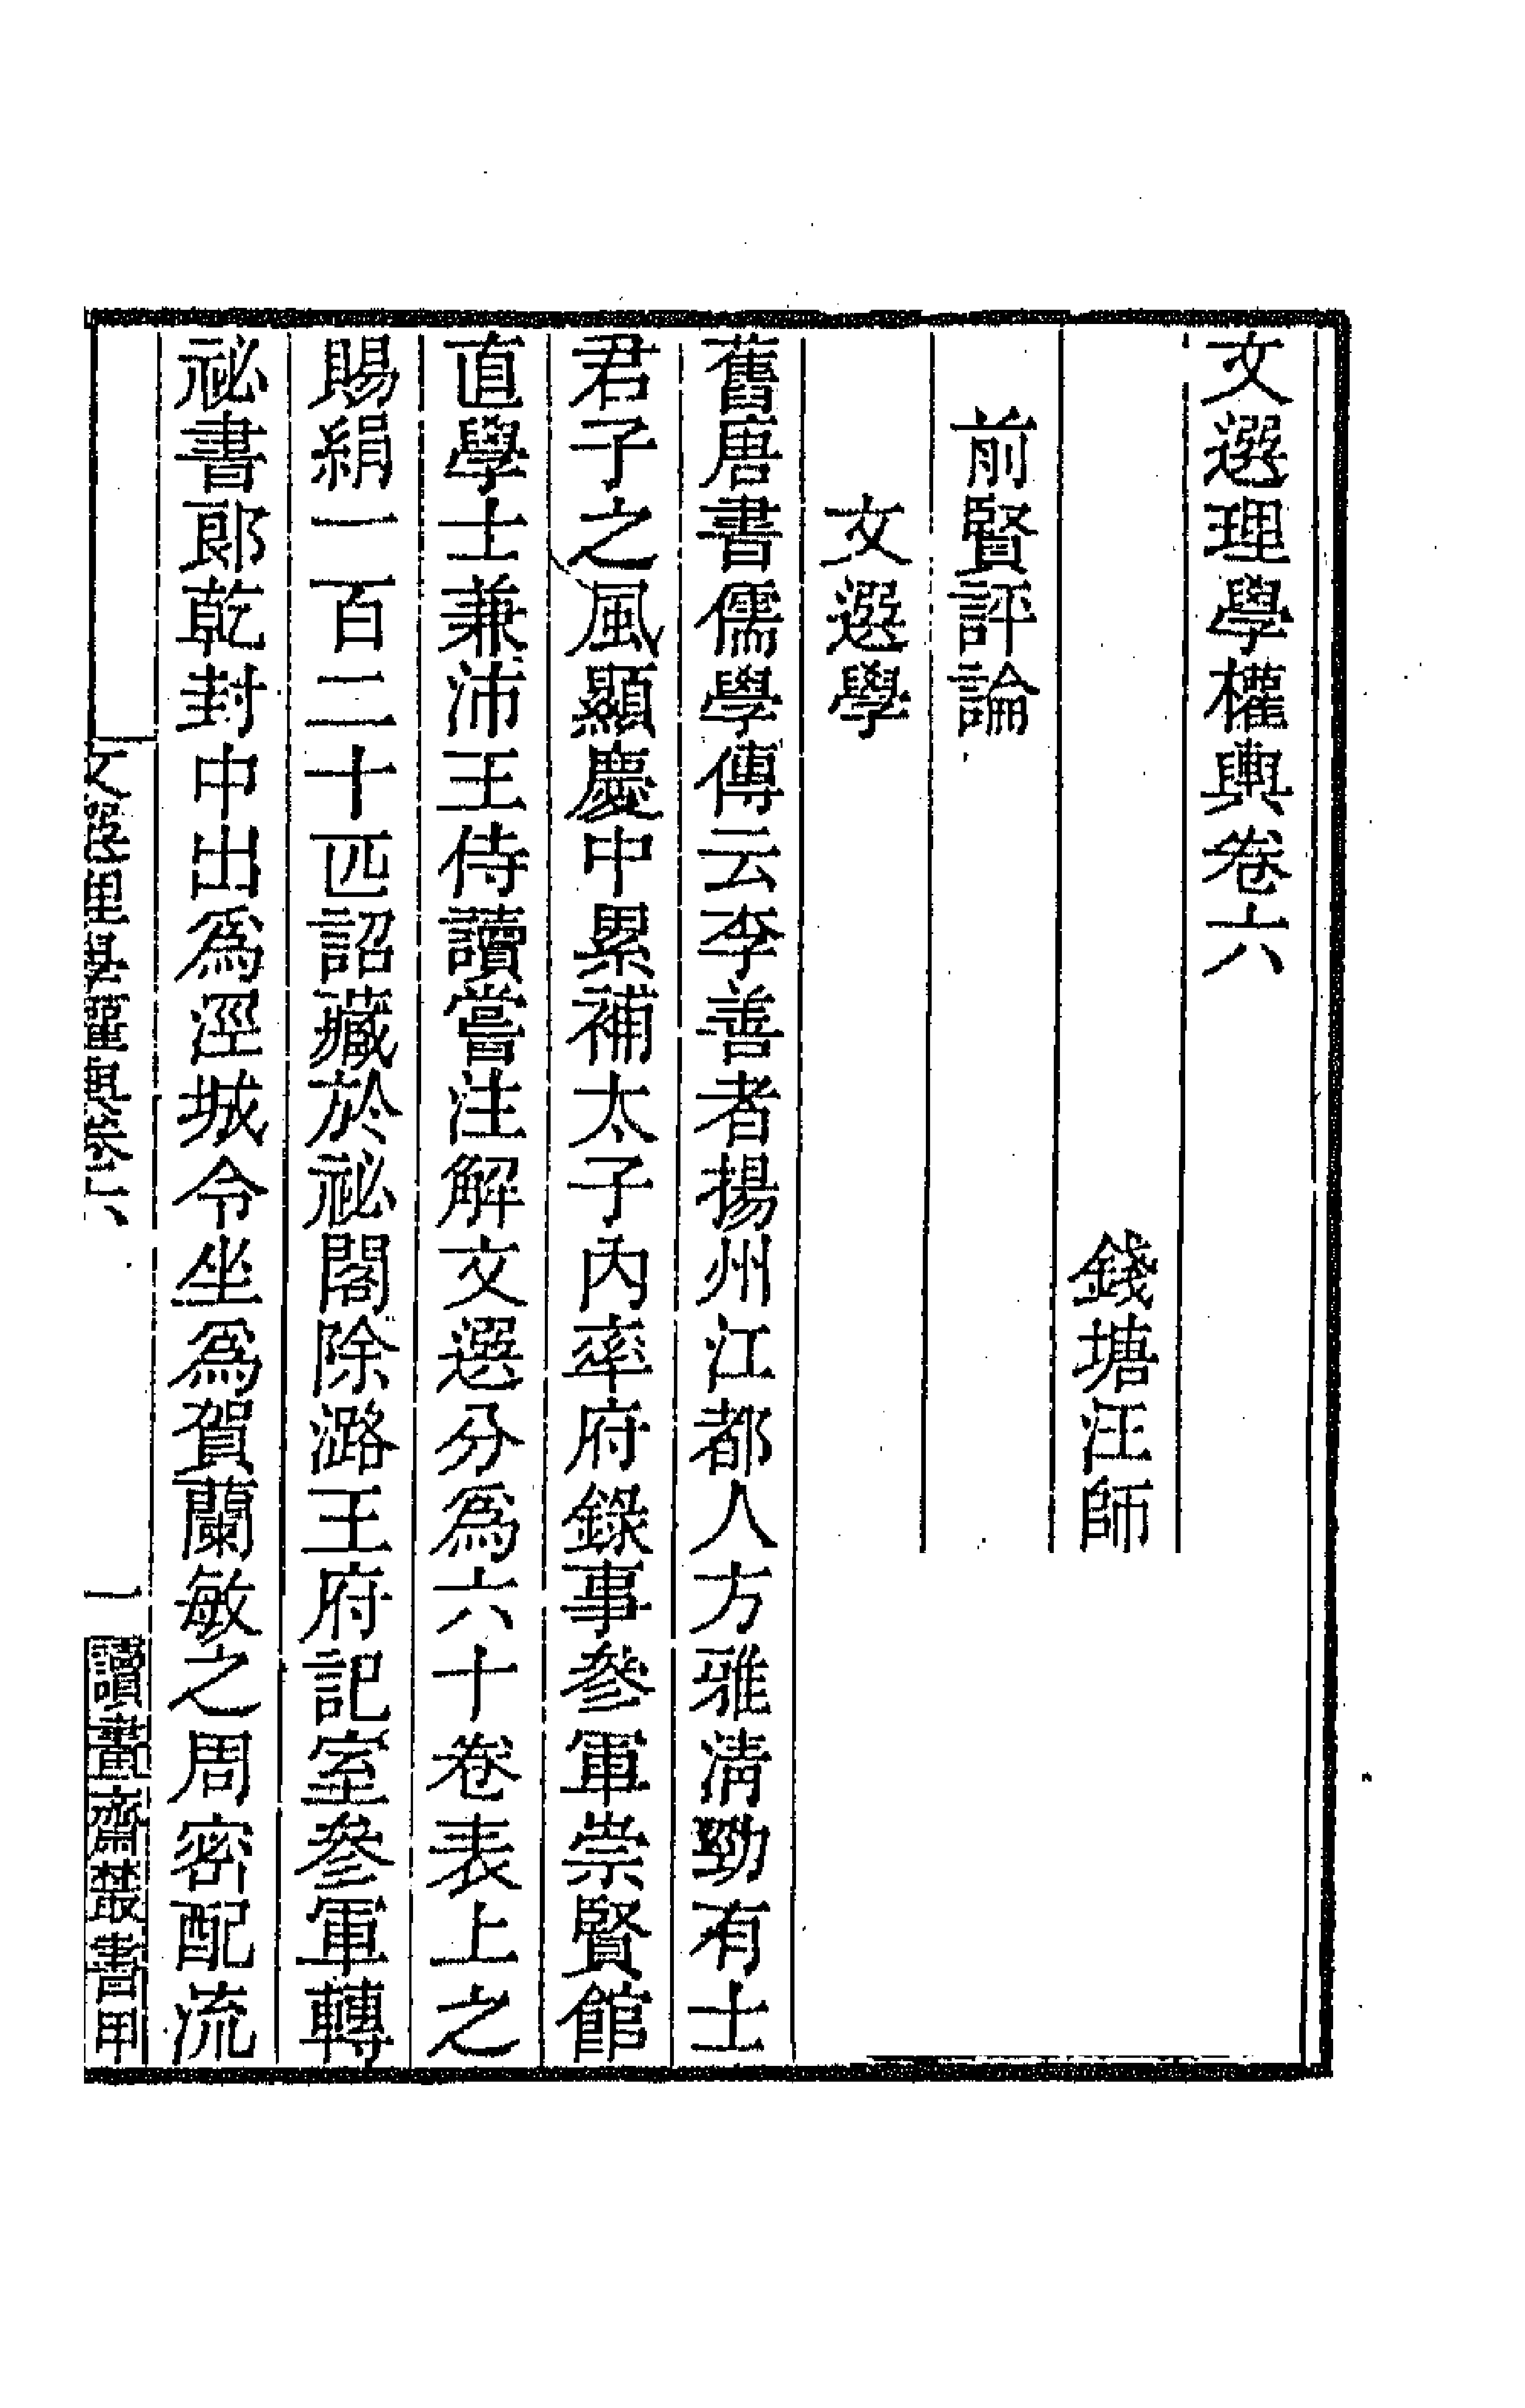 文選理學權輿卷六
錢塘汪師
前賢評論
文選學
舊唐書儒學傳云李善者揚州江都人方雅淸勁有士
君子之風顯慶中累補太子內率府錄事參軍崇賢館
直學士兼沛王侍讀嘗注解文選分爲六十卷表上之
賜絹一百二十匹詔藏於祕閣除潞王府記室參軍轉
祕書郞乾封中出爲涇城令坐爲賀蘭敏之周密配流
文選理學權輿卷六
一
讀畫齋叢書甲